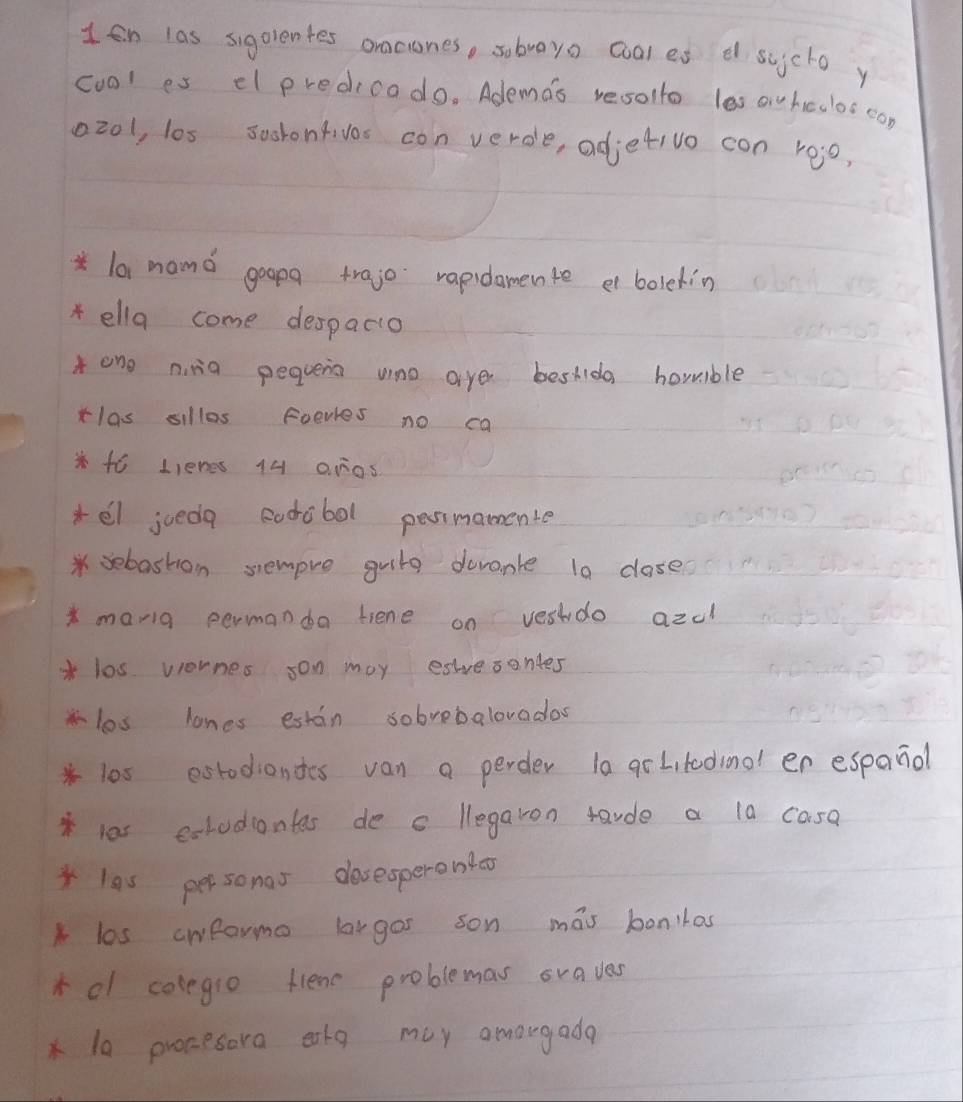 1 En las sigoientes oraciones, sobraya coal es el sujeto y
cual es el predicado. Además resalto los articulos con
azol, los sustantivos con verde, adjetivo con rojo,
* la mamá goapa trajo rapidamente el boletín
* ella come despacio
* ona niña pequeña vino ayer bestida horrible
* las sillas foertes no ca
* tú tienes 14 años
* él joega fotobol pesimamente
* sebastian siempre grita durante la clase
* maria fermanda tiene on vestido azul
* los viernes son moy estresantes
* los lones están sobrebalorados
* los estodiantes van a perder la actitodinal en español
* los estudiantes de c llegaron tarde a la casa
* las personas desesperantes
* los largos son más bonitas
* el colegio tiene problemas graves
* la profesora esta moy amargada